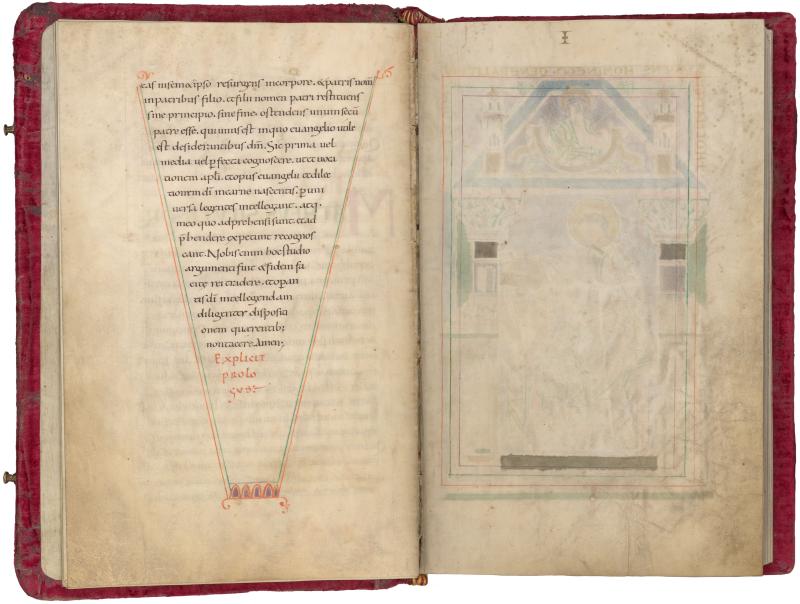 eas in semetipso resurgens in corpore. & patris nom̄
in patribus filio. et filii nomen patri restituens
sine principio. sine fine ostendens unum se cū
patre esse. quia unus est. in quo euangelio utile
est desiderantibus dm̄. Sic prima uel
media uel pfecta cognoscere. ut et uoca
tionem apli. et opus euangelii et dilec
tionem dī in carne nascentis. p uni
uersa legentes intellegant. atq.
in eo quo adprehensi sunt. et ad
p̄hendere expetunt recognos
cant. Nobis enim hoc studio
argumenti fuit & fidem fa
ctę rei tradere. et operan
tis dī intellegendam
diligenter dispositi
onem querentib;
non tacere. Amen;
Explicit
prolo
gus
I